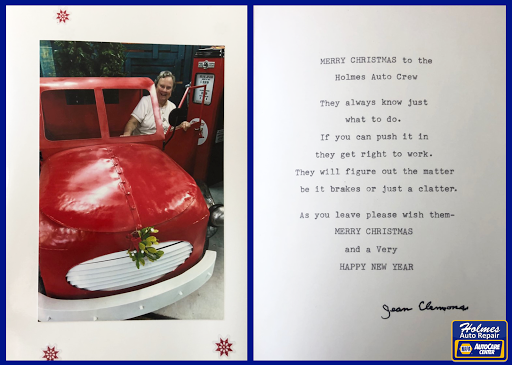 MERRY CHRISTMAS to the
Holmes Auto Crew
They always know just
what to do.
If you can push it in
they get right to work.
They will figure out the matter
be it brakes or just a clatter.
As you leave please wish them-
MERRY CHRISTMAS
and a Very
HAPPY NEW YEAR
Jean Clemons
Holmes
Auto Repair
NAPA AUTOCARE
CENTER